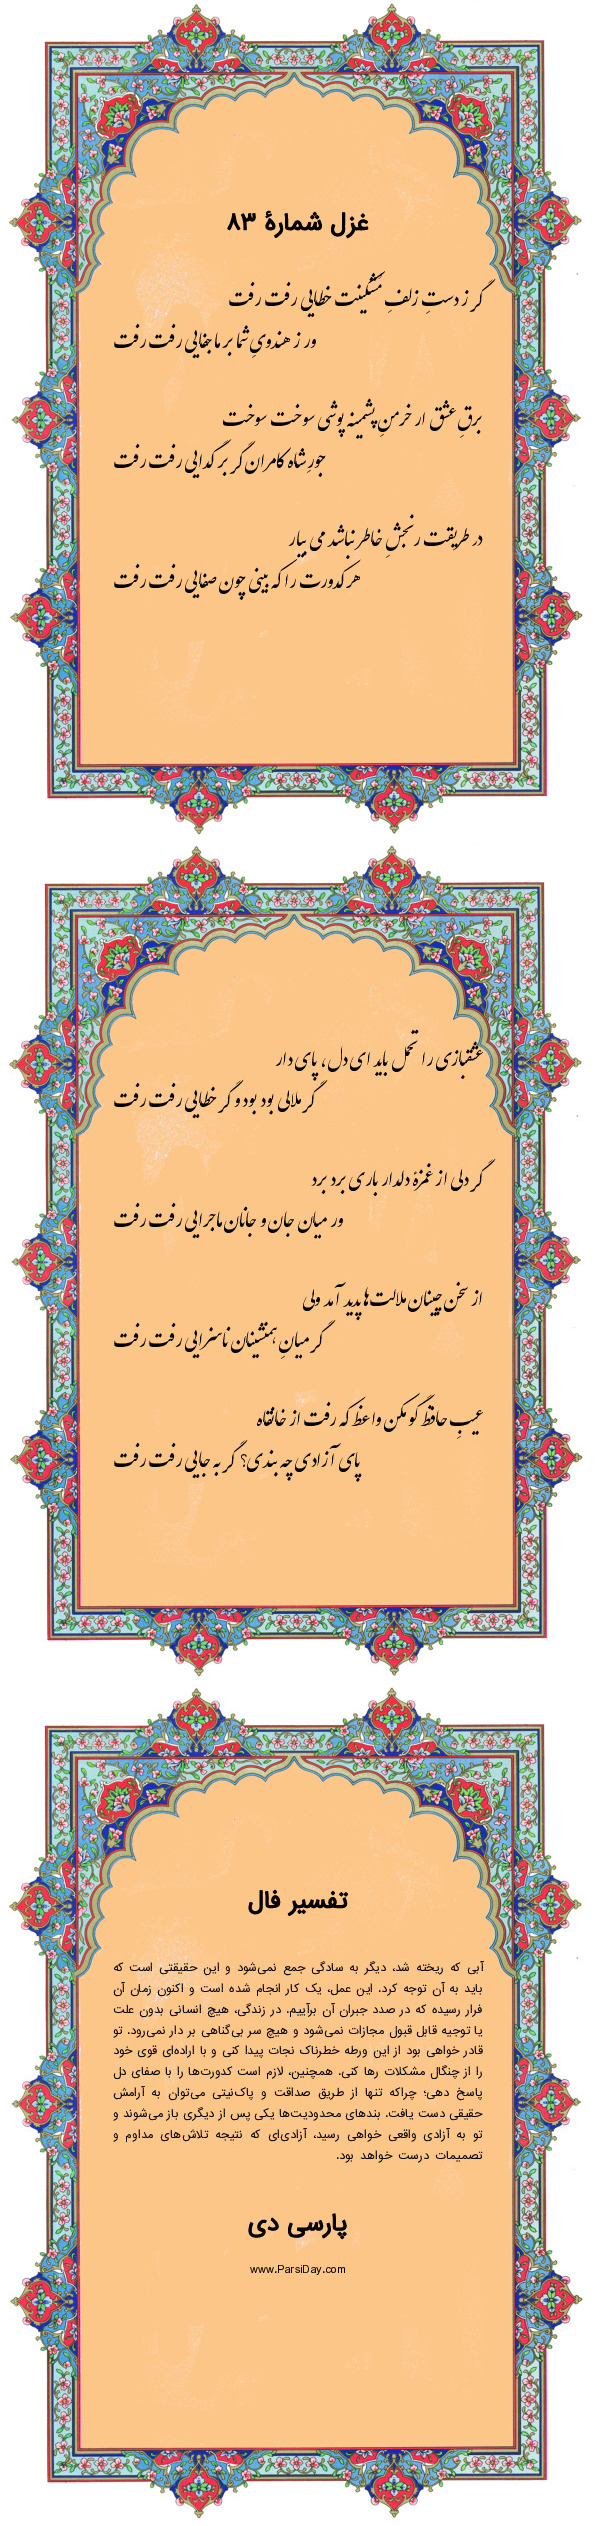 غزل شمارهٔ ۸۳
گر ز دستِ زلفِ مُشکینت خطایی رفت رفت
ور ز هندویِ شما بر ما جفایی رفت رفت
برقِ عشق ار خرمنِ پشمینه پوشی سوخت سوخت
جورِ شاه کامران گر بر گدایی رفت رفت
در طریقت رنجشِ خاطر نباشد می بیار
هر کدورت را که بینی چون صفایی رفت رفت
عشقبازی را تحمل باید ای دل، پای دار
گر ملالی بود بود و گر خطایی رفت رفت
گر دلی از غمزهٔ دلدار باری برد برد
ور میان جان و جانان ماجرایی رفت رفت
از سخن چینان ملالت‌ها پدید آمد ولی
گر میانِ همنشینان ناسزایی رفت رفت
عیبِ حافظ گو مکن واعظ که رفت از خانقاه
پای آزادی چه بندی؟ گر به جایی رفت رفت
تفسیر فال
آبی که ریخته شد، دیگر به سادگی جمع نمی‌شود و این حقیقتی است که
باید به آن توجه کرد. این عمل، یک کار انجام شده است و اکنون زمان آن
فرار رسیده که در صدد جبران آن برآییم. در زندگی، هیچ انسانی بدون علت
یا توجیه قابل قبول مجازات نمی‌شود و هیچ سر بی‌گناهی بر دار نمی‌رود. تو
قادر خواهی بود از این ورطه خطرناک نجات پیدا کنی و با اراده‌ای قوی خود
را از چنگال مشکلات رها کنی. همچنین، لازم است کدورت‌ها را با صفای دل
پاسخ دهی؛ چراکه تنها از طریق صداقت و پاک‌نیتی می‌توان به آرامش
حقیقی دست یافت. بندهای محدودیت‌ها یکی پس از دیگری باز می‌شوند و
تو به آزادی واقعی خواهی رسید، آزادی‌ای که نتیجه تلاش‌های مداوم و
تصمیمات درست خواهد بود.
پارسی دی
www.ParsiDay.com